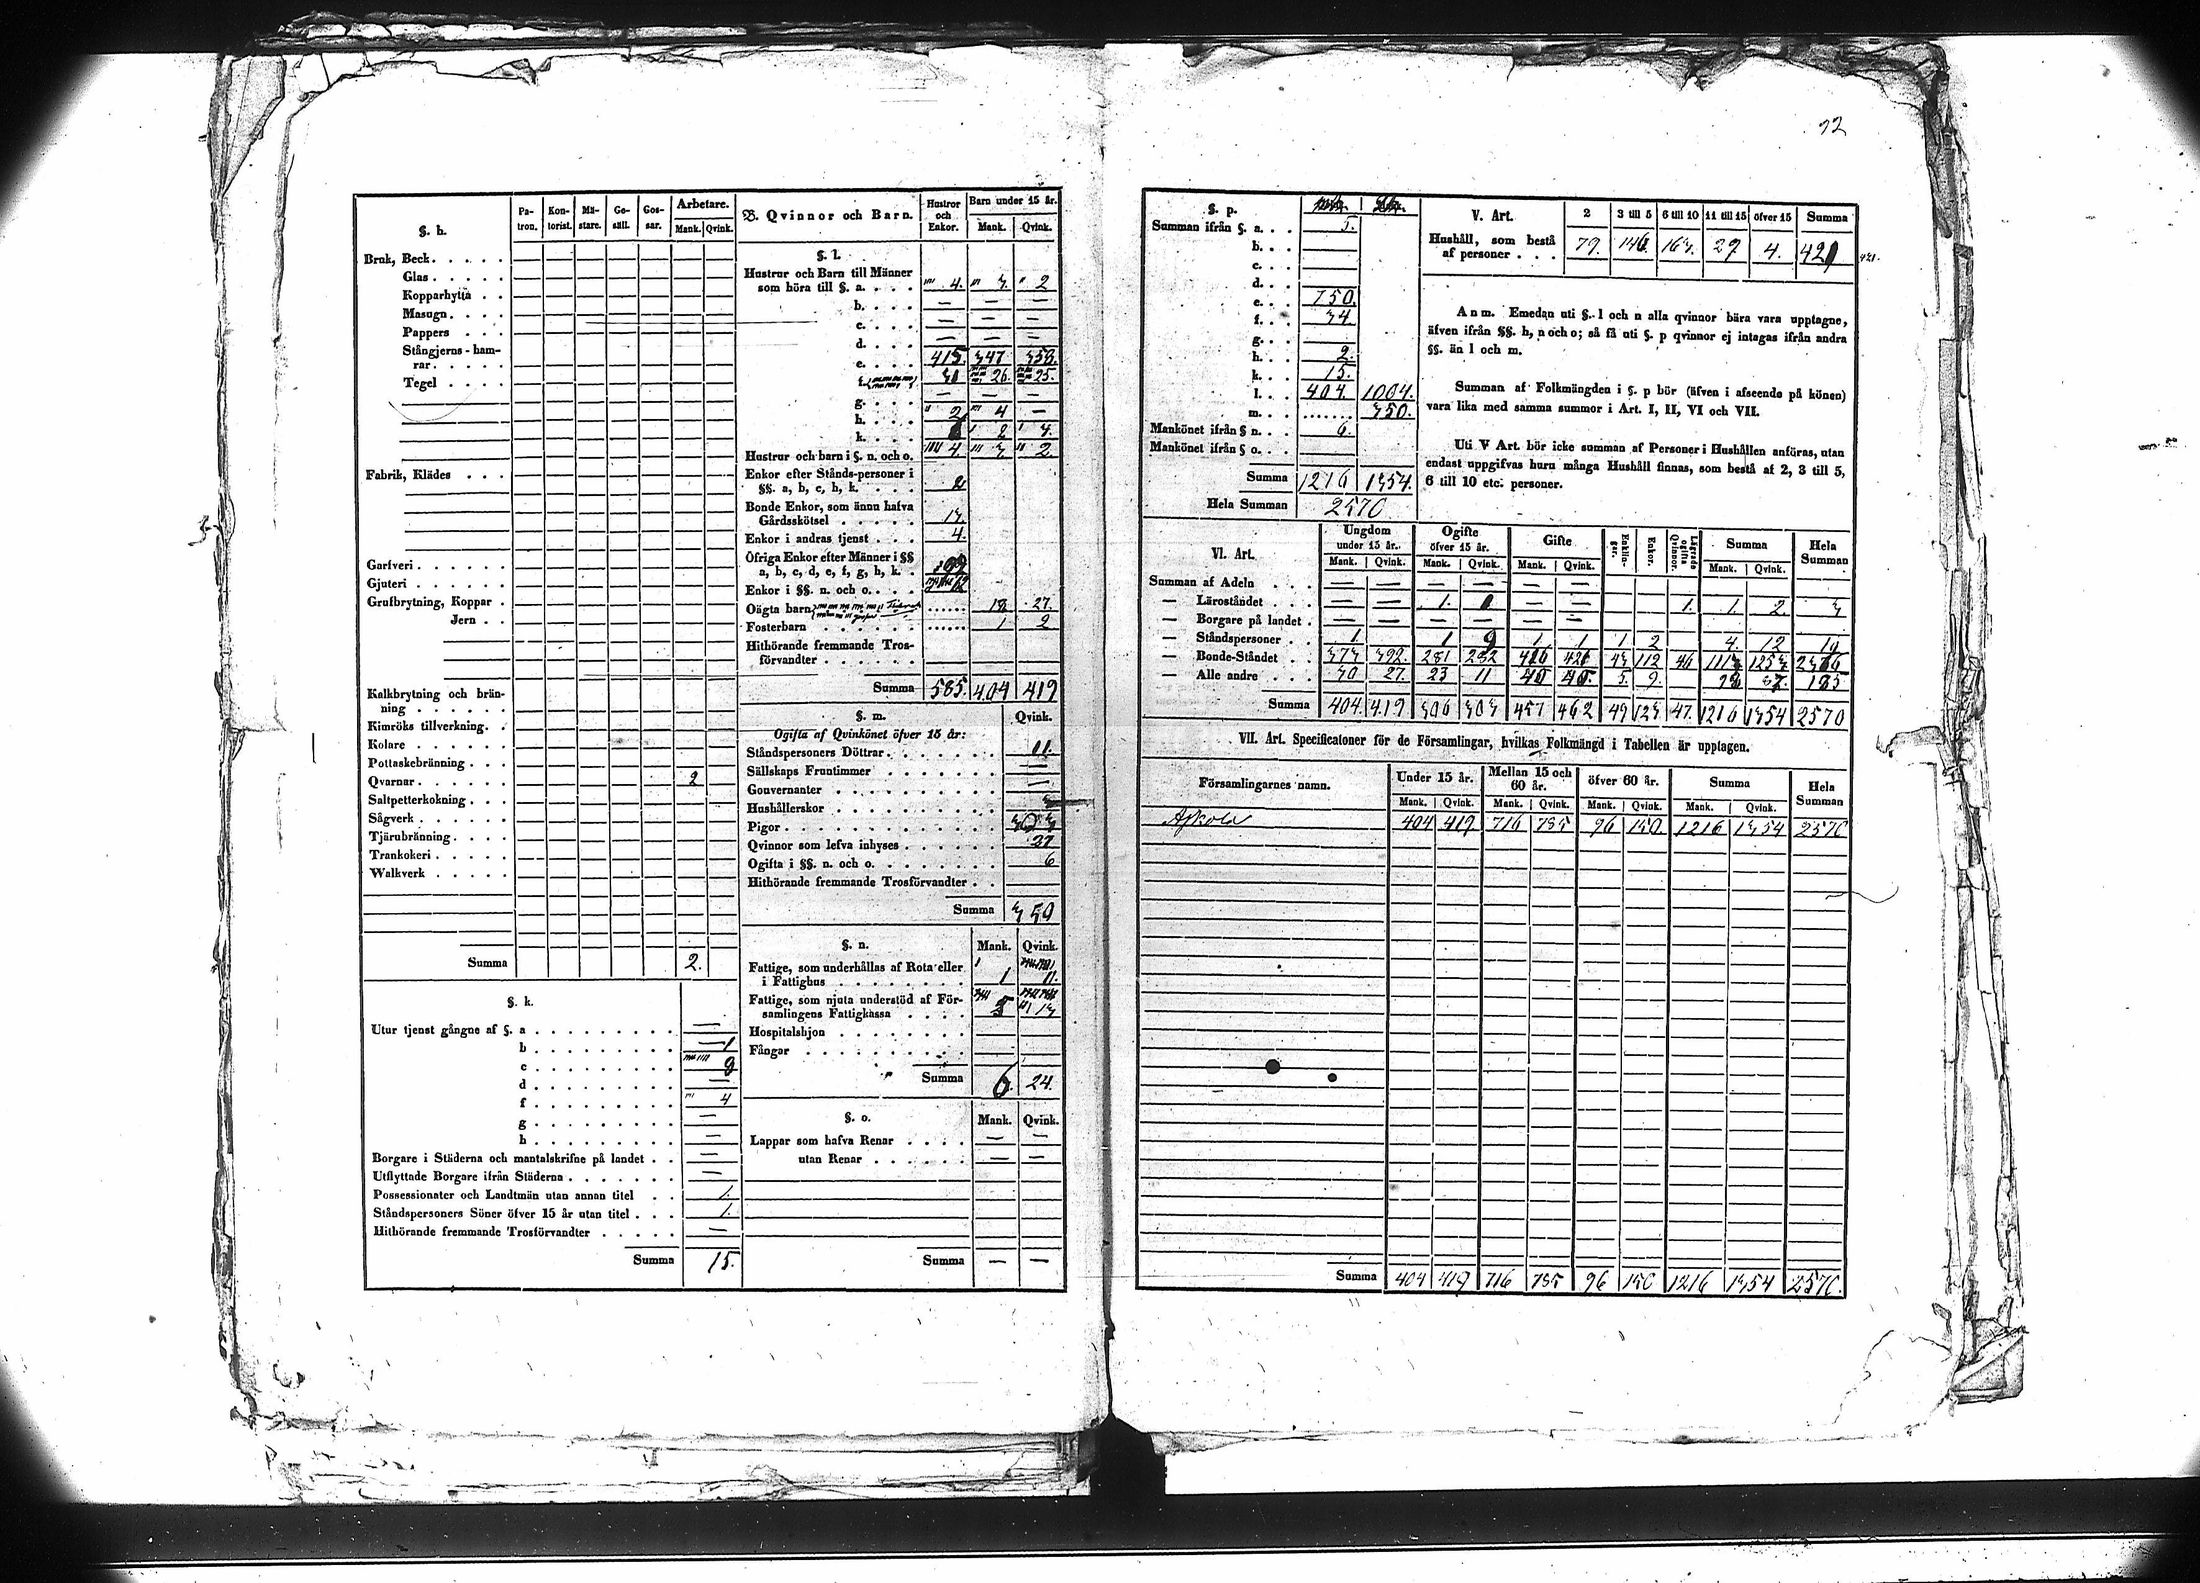 72
§. h.
Pa- tron. Kon- torist. Mä- stare. Ge- säll. Gos- sar. Arbetare. Mank. Qvink.
Bruk, Beck
Glas
Kopparhytta
Masugn
Pappers
Stångjerns-ham-
rar
Tegel
Fabrik, Klädes
Garfveri
Gjuteri
Grufbrytning, Koppar
Jern
Kalkbrytning och brän-
ning
Kimröks tillverkning
Kolare
Pottaskebränning
Qvarnar 2
Saltpetterkokning
Sågverk
Tjärubränning
Trankokeri
Walkverk
Summa 2.
§. k.
Utur tjenst gångne af §. a —
b 1
c 9
d —
f 4
g —
h —
Borgare i Städerna och mantalskrifne på landet —
Utflyttade Borgare ifrån Städerna —
Possessionater och Landtmän utan annan titel 1.
Ståndspersoners Söner öfver 15 år utan titel 1.
Hithörande fremmande Trosförvandter —
Summa 15.
B. Qvinnor och Barn. Hustror och Enkor. Barn under 15 år. Mank. Qvink.
§. l.
Hustrur och Barn till Männer
som höra till §. a. 4. 3. 2
b. — — —
c. — — —
d. — — —
e. 415. 347. 358.
f. 30 26. 25.
g. — — —
h. 2 4 —
k. 2 4.
Hustrur och barn i §. n. och o. 4. 3. 2.
Enkor efter Stånds-personer i
§§. a, b, c, h, k. 2
Bonde Enkor, som ännu hafva
Gårdsskötsel 13.
Enkor i andras tjenst 4.
Öfriga Enkor efter Männer i §§
a, b, c, d, e, f, g, h, k.
Enkor i §§. n. och o. 12
Oägta barn 18 27.
Fosterbarn 1 2
Hithörande fremmande Tros-
förvandter
Summa 585. 404 419
§. m. Qvink.
Ogifta af Qvinkönet öfver 15 år:
Ståndspersoners Döttrar 11.
Sällskaps Fruntimmer —
Gouvernanter —
Hushållerskor
Pigor 303
Qvinnor som lefva inhyses 27
Ogifta i §§. n. och o. 6
Hithörande fremmande Trosförvandter
Summa 350
§. n. Mank. Qvink.
Fattige, som underhållas af Rota eller
i Fattighus 1 11.
Fattige, som njuta understöd af För-
samlingens Fattigkassa 5 13
Hospitalshjon
Fångar
Summa 6. 24.
§. o. Mank. Qvink.
Lappar som hafva Renar — —
utan Renar — —
Summa — —
§. p.
Summan ifrån §. a. 5.
b.
c.
d.
e. 750.
f. 34.
g.
h. 2.
k. 15.
l. 404. 1004.
m. ....... 350.
Mankönet ifrån § n. 6.
Mankönet ifrån § o.
Summa 1216 1354.
Hela Summan 2570
V. Art. 2 3 till 5 6 till 10 11 till 15 öfver 15 Summa
Hushåll, som bestå
af personer 79. 146. 163. 29 4. 421 421.
Anm. Emedan uti §. l och n alla qvinnor böra vara upptagne,
äfven ifrån §§. h, n och o; så få uti §. p qvinnor ej intagas ifrån andra
§§. än l och m.
Summan af Folkmängden i §. p bör (äfven i afseende på könen)
vara lika med samma summor i Art. I, II, VI och VII.
Uti V Art. bör icke summan af Personer i Hushållen anföras, utan
endast uppgifvas huru många Hushåll finnas, som bestå af 2, 3 till 5,
6 till 10 etc. personer.
VI. Art. Ungdom under 15 år. Ogifte öfver 15 år. Gifte Enklin- gar. Enkor. Lägrade ogifta Qvinnor. Summa Hela Summan
Mank. Qvink. Mank. Qvink. Mank. Qvink. Mank. Qvink.
Summan af Adeln — — — — — —
— Läroståndet — — 1. — — 1. 1. 2. 3
— Borgare på landet — — — — — —
— Ståndspersoner 1. 1 9 1 1 1 2 4. 12 16
— Bonde-Ståndet 373 392. 281 282 416 421 43 112 46 1113 1253 2366
— Alle andre 30 27. 23 11 40 40. 5. 9. 98 87. 185
Summa 404. 419 306 303 457 462 49 123 47. 1216 1354 2570
VII. Art. Specificatoner för de Församlingar, hvilkas Folkmängd i Tabellen är upptagen.
Församlingarnes namn. Under 15 år. Mellan 15 och 60 år. öfver 60 år. Summa Hela Summan
Mank. Qvink. Mank. Qvink. Mank. Qvink. Mank. Qvink.
Askola 404 419 716 785 96 150 1216 1354 2570
Summa 404 419 716 785 96 150 1216 1354 2570.